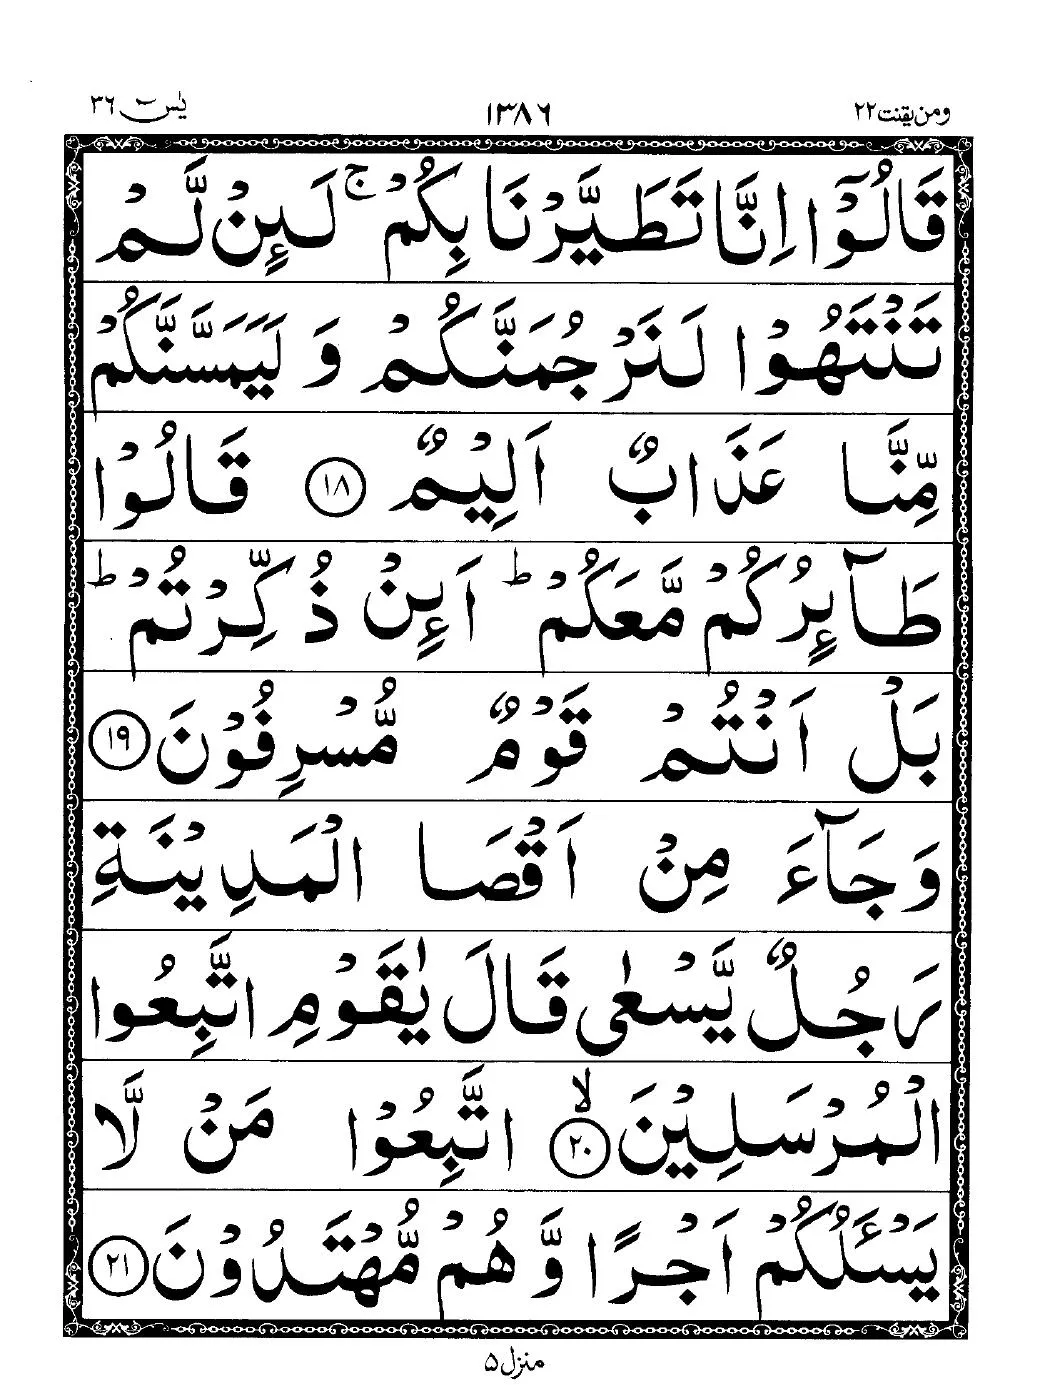 ومن یقنت ۲۲ ۱۳۸۶ یٰسٓ ۳۶
قَالُوْۤا اِنَّا تَطَیَّرْنَا بِكُمْ ۚ لَىِٕنْ لَّمْ
تَنْتَهُوْا لَنَرْجُمَنَّكُمْ وَ لَیَمَسَّنَّكُمْ
مِّنَّا عَذَابٌ اَلِیْمٌ ۝۱۸ قَالُوْا
طَآىِٕرُكُمْ مَّعَكُمْ ؕ اَىِٕنْ ذُكِّرْتُمْ ؕ
بَلْ اَنْتُمْ قَوْمٌ مُّسْرِفُوْنَ ۝۱۹
وَ جَآءَ مِنْ اَقْصَا الْمَدِیْنَةِ
رَجُلٌ یَّسْعٰى قَالَ یٰقَوْمِ اتَّبِعُوا
الْمُرْسَلِیْنَ ۙ۝۲۰ اتَّبِعُوْا مَنْ لَّا
یَسْـَٔلُكُمْ اَجْرًا وَّ هُمْ مُّهْتَدُوْنَ ۝۲۱
منزل ۵